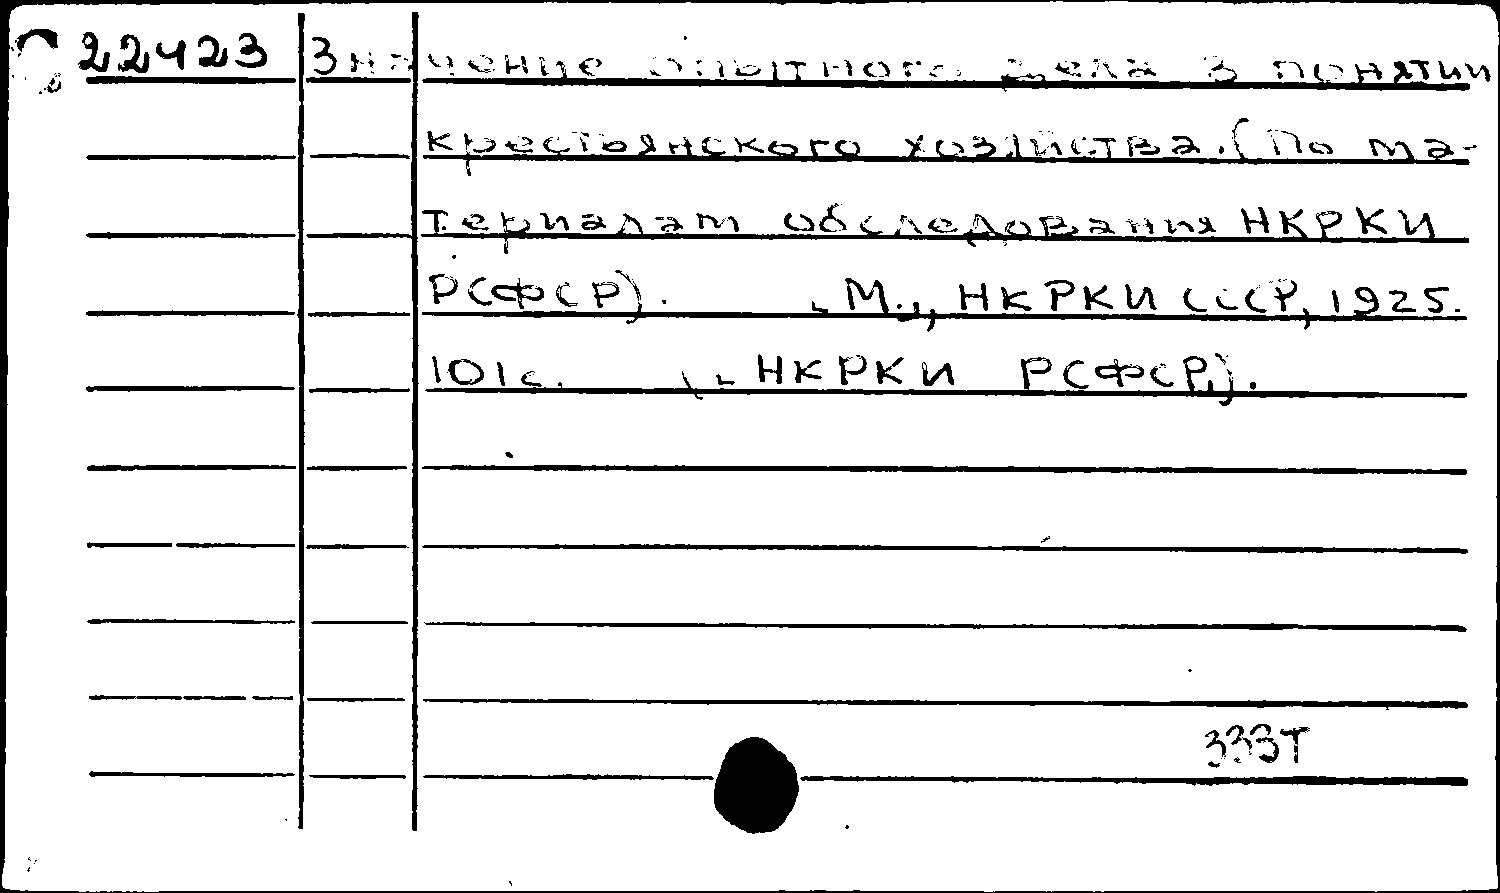 22423 Значение опытного дела в понятии
крестьянского хозяйства. (По ма-
териалам обследования НКРКИ
РСФСР). М., НКРКИ СССР, 1925.
101с. (НКРКИ РСФСР).
333Т